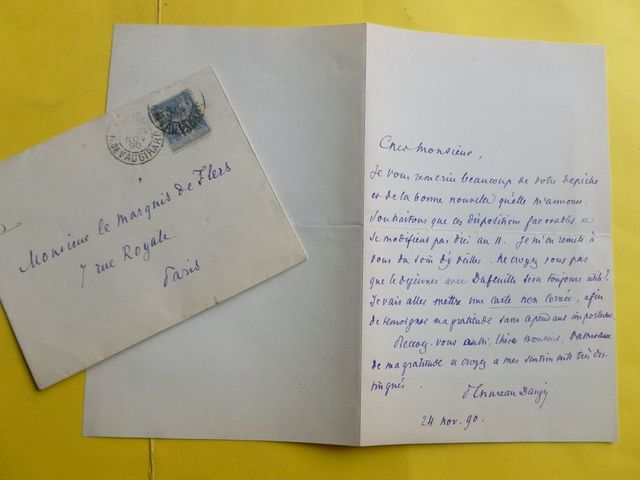 R. DE VAUGIRARD
NOV
90
Monsieur le Marquis de Flers
7 rue Royale
Paris.
Cher Monsieur,
Je vous remercie beaucoup de votre dépêche
et de la bonne nouvelle qu'elle m'annonce.
Souhaitons que ces dispositions favorables ne
se modifient pas d'ici au 11. Je m'en remets à
vous du soin d'y veiller. Ne croyez vous pas
que le déjeuner avec Dufeuille sera toujours utile?
Je vais aller mettre une carte non cornée, afin
de témoigner ma gratitude sans cependant importuner.
Recevez-vous aussi, cher Monsieur, l'assurance
de ma gratitude et croyez à mes sentiments très dis-
tingués.
Thureau Dangin
24 nov. 90.